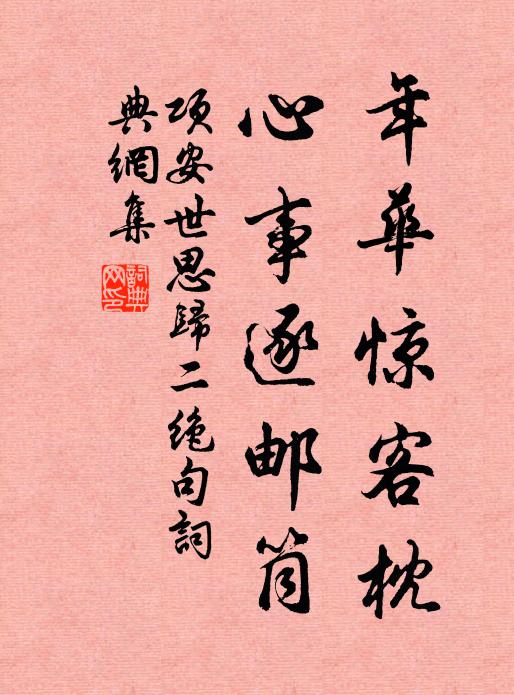 年華惊客枕
心事逐邮筒
项安世思歸二绝句詞
典網集
詞典网印